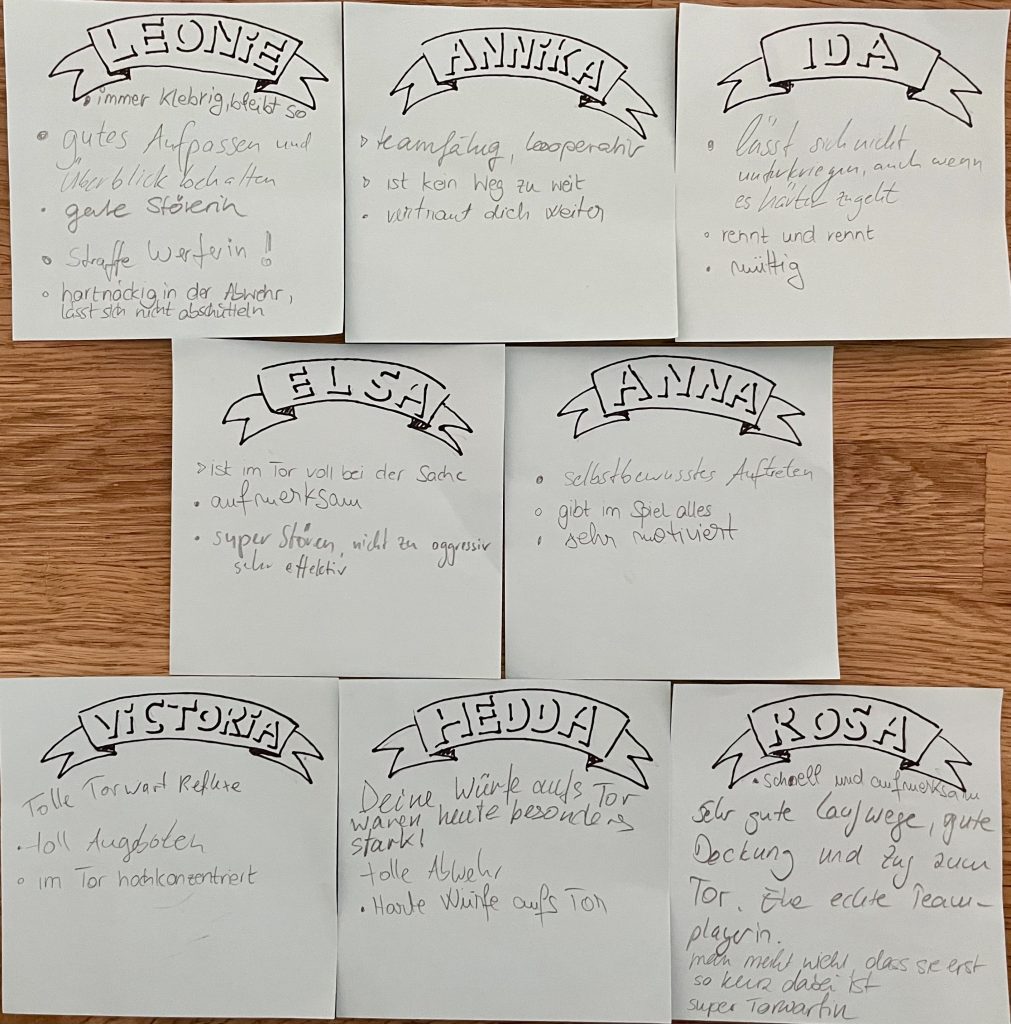 LEONiE
• immer klebrig, bleibt so
• gutes Aufpassen und
Überblick behalten
• gute Störerin
• Straffe Werferin!
• hartnäckig in der Abwehr,
lässt sich nicht abschütteln
ANNiKA
• teamfähig, kooperativ
• ist kein Weg zu weit
• vertraut dich weiter
IDA
• lässt sich nicht
unterkriegen, auch wenn
es härter zugeht
• rennt und rennt
• mutig
ELSA
• ist im Tor voll bei der Sache
• aufmerksam
• super Stören, nicht zu aggressiv
sehr effektiv
ANNA
• selbstbewusstes Auftreten
• gibt im Spiel alles
• sehr motiviert
ViCTORiA
Tolle Torwart Reflexe
• toll Angeboten
• im Tor hochkonzentriert
HEDDA
Deine Würfe aufs Tor
waren heute besonders
stark!
tolle Abwehr
• Harte Würfe aufs Tor
ROSA
• schnell und aufmerksam
Sehr gute Laufwege, gute
Deckung und Zug zum
Tor. Eine echte Team-
playerin.
man merkt nicht, dass sie erst
so kurz dabei ist
super Torwartin